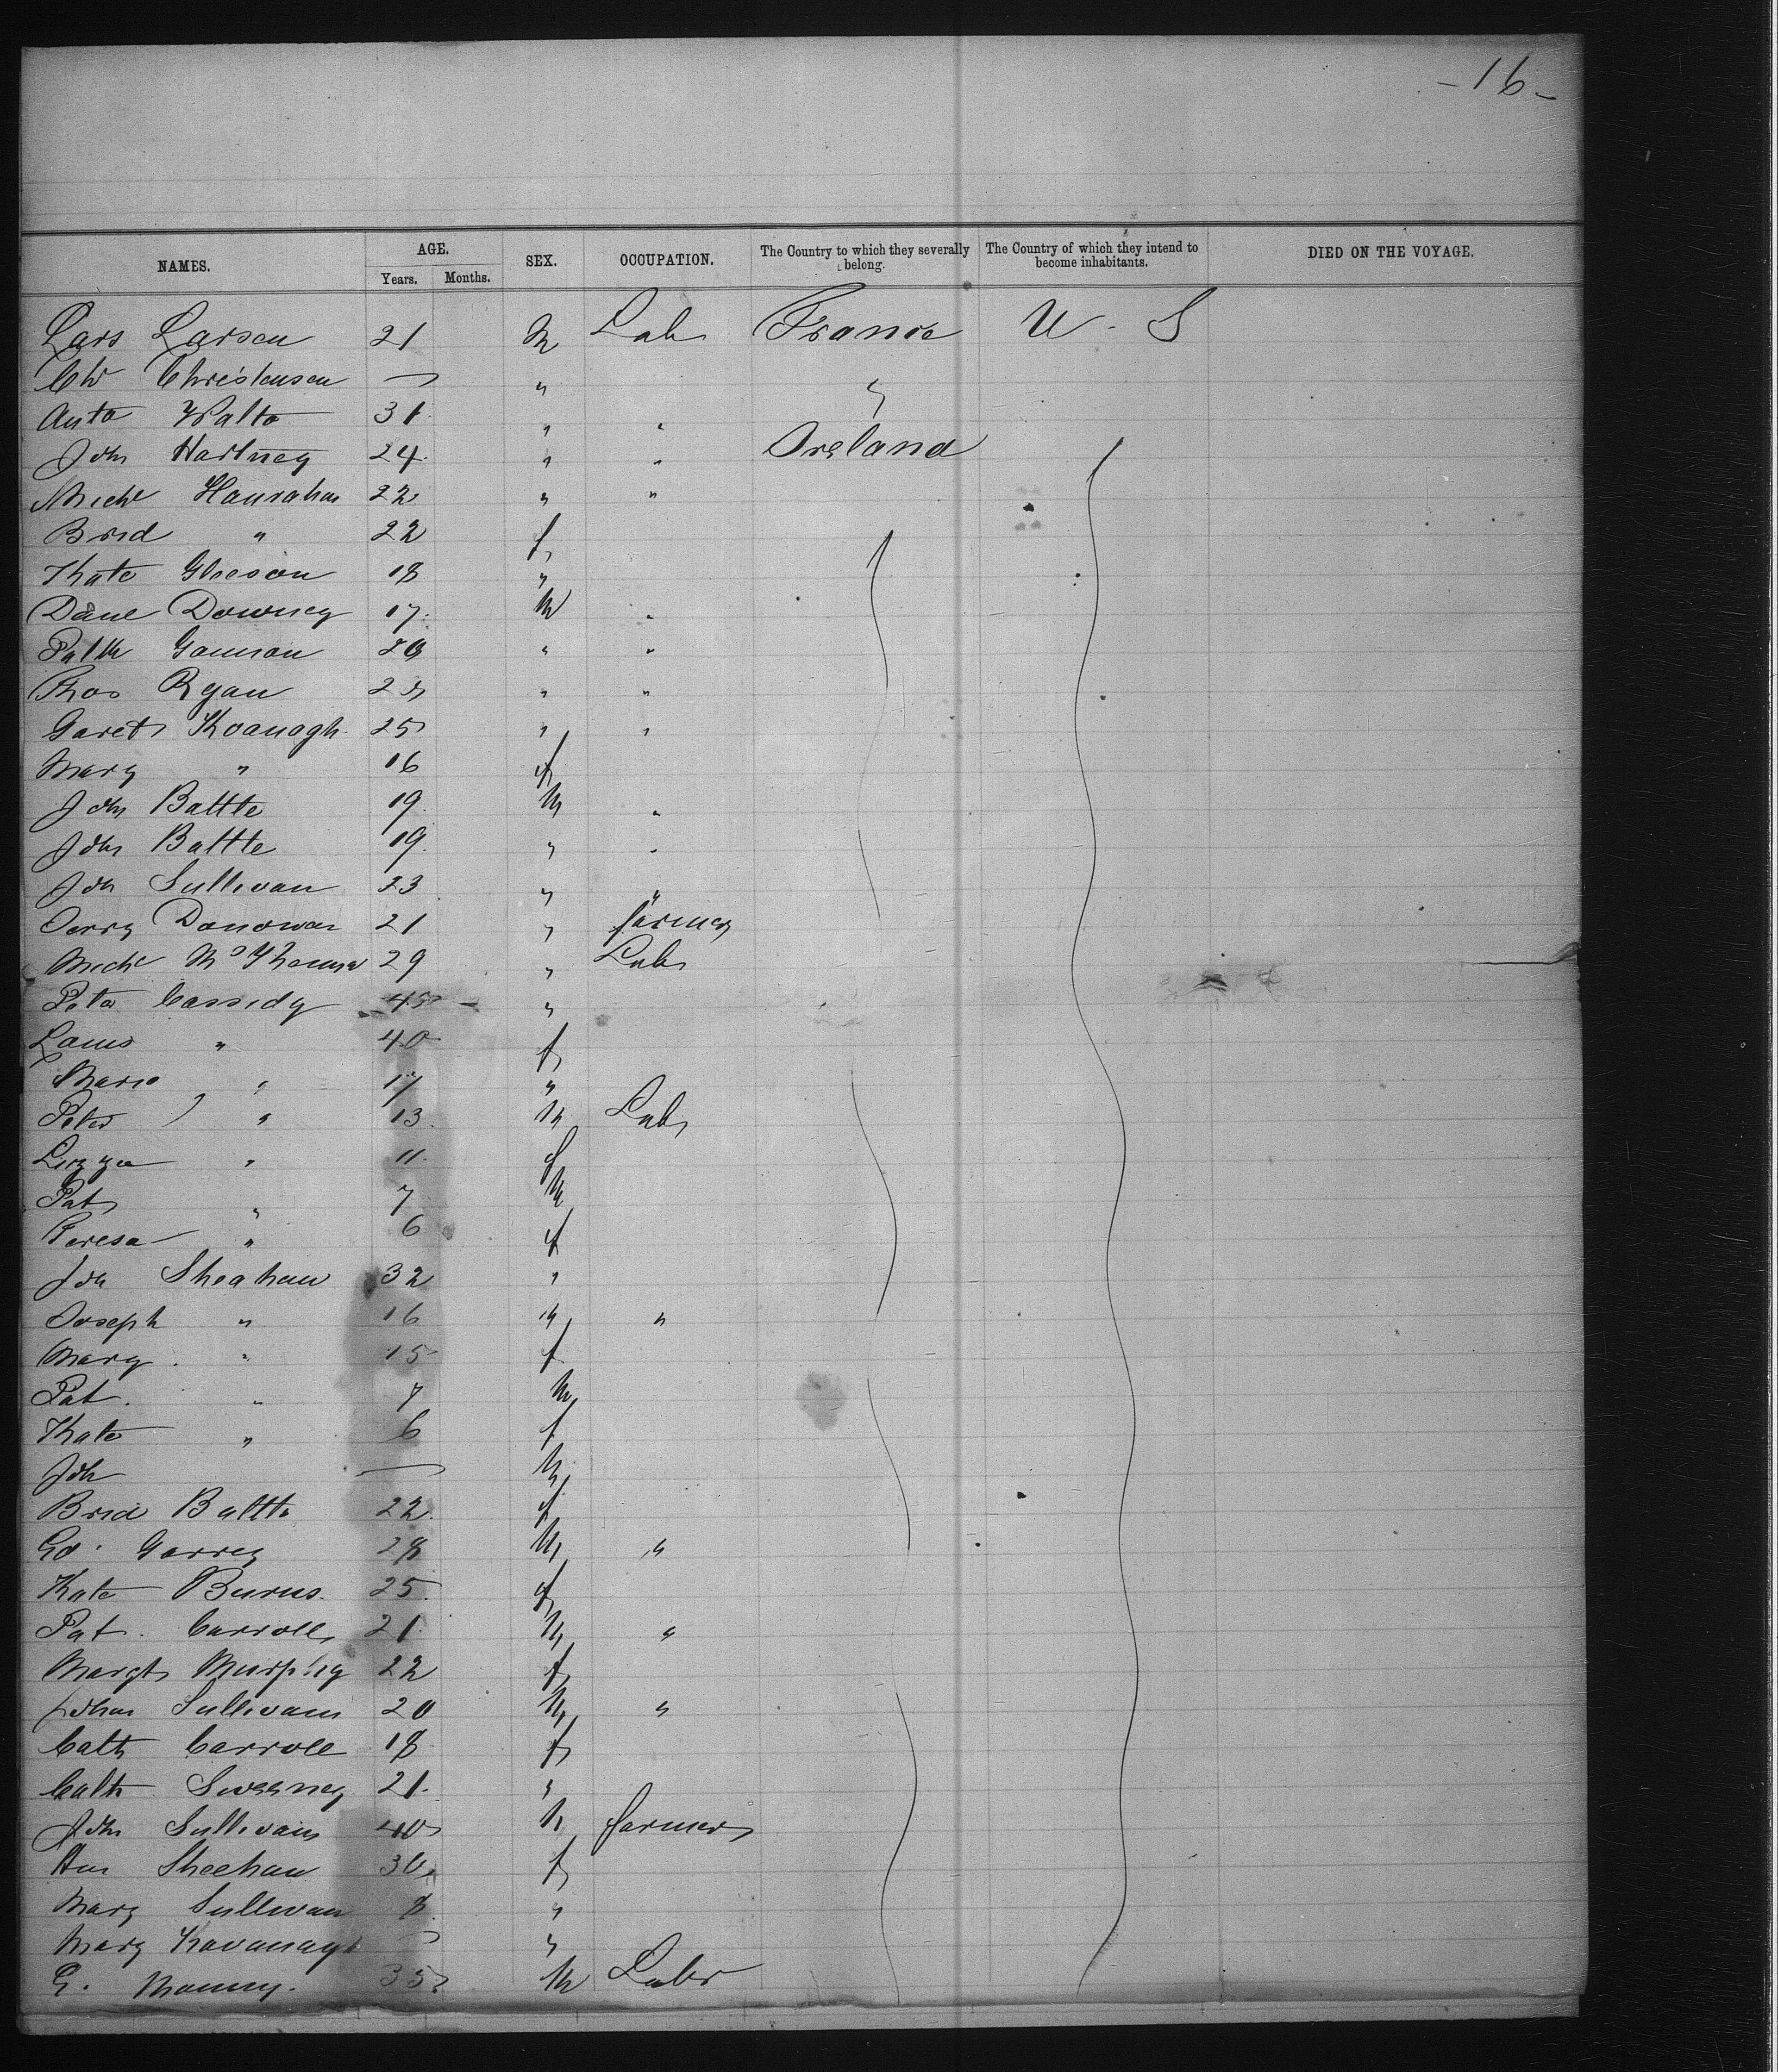 - 16 -
NAMES. AGE. Years. Months. SEX. OCCUPATION. The Country to which they severally belong. The Country of which they intend to become inhabitants. DIED ON THE VOYAGE.
Lars Larsen 21 M Lab France U. S
Chr Christensen — " "
Anto Walto 31 " "
John Hartney 24 " " Ireland
Michl Hanrahan 22 " "
Brid " 22 f
Kate Gleeson 18 "
Danl Downey 17 M "
Patk Gannon " "
Thos Ryan " "
Garet Kvanagh 25 " "
Mary " 16 f
John Battle 19 M "
John Battle 19 " "
Joh Sullivan 23 " "
Jerry Donowan 21 " farmer
Michl 29 " Lab
Peter Cassidy 45 "
" 40 f
Maria " 17 "
Peter " 13 M Lab
Lizza " 11 f
Pat " 7 M
Teresa " 6 f
Joh Sheahan 32 "
Joseph " 16 M "
Mary " 15 f
Pat " 7 M
Kate " 6 f
Joh — M
Brid Battle 22 f
Ed. Garrey 28 M "
Kate Burns 25 f
Pat. Carroll 21 M "
Margt Murphy 22 f
Johan Sullivan 20 M "
Cath Carroll 18 f
Cath Sweeney 21 "
John Sullivan 40 M farmer
Sheehan 30 f
Mary Sullivan 8 "
Mary Kavanagh — "
G. 35 M Labr